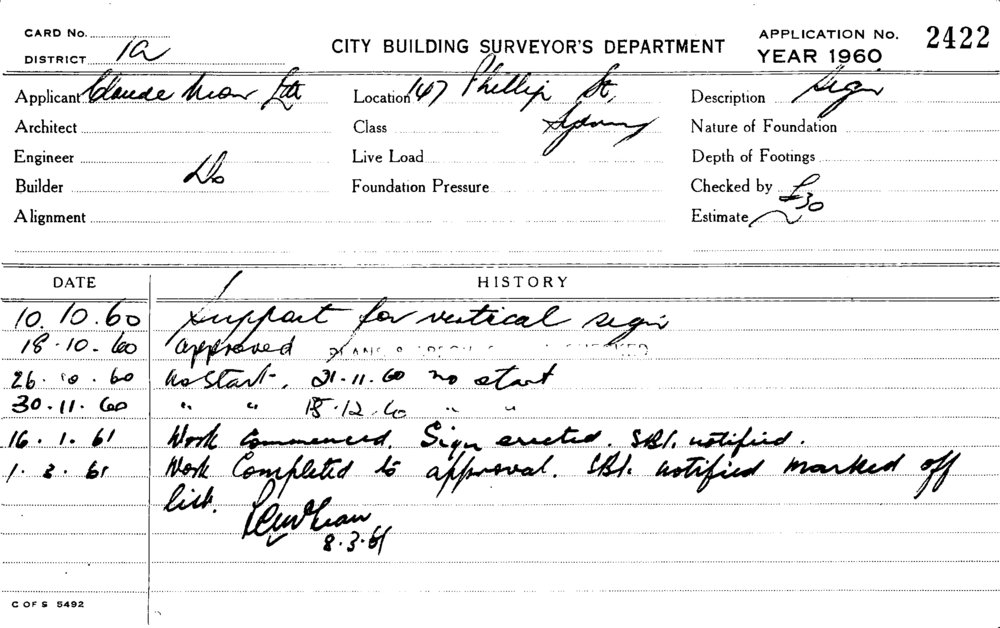 CARD No.
DISTRICT 1a
CITY BUILDING SURVEYOR'S DEPARTMENT
APPLICATION No. 2422
YEAR 1960
Applicant Claude Neon Ltd
Location 147 Phillip St,
Sydney
Description Sign
Architect
Class
Nature of Foundation
Engineer
Live Load
Depth of Footings
Builder Do
Foundation Pressure
Checked by
Alignment
Estimate £30
DATE HISTORY
10.10.60 Support for vertical sign
18.10.60 approved PLANS & CHECKED
26.10.60 No start. 21.11.60 no start
30.11.60 " " 15.12.60 " "
16.1.61 Work Commenced. Sign erected. SBI. notified.
1.3.61 Work Completed to approval. SBI. notified marked off
list.
8.3.61
C OF S 5492